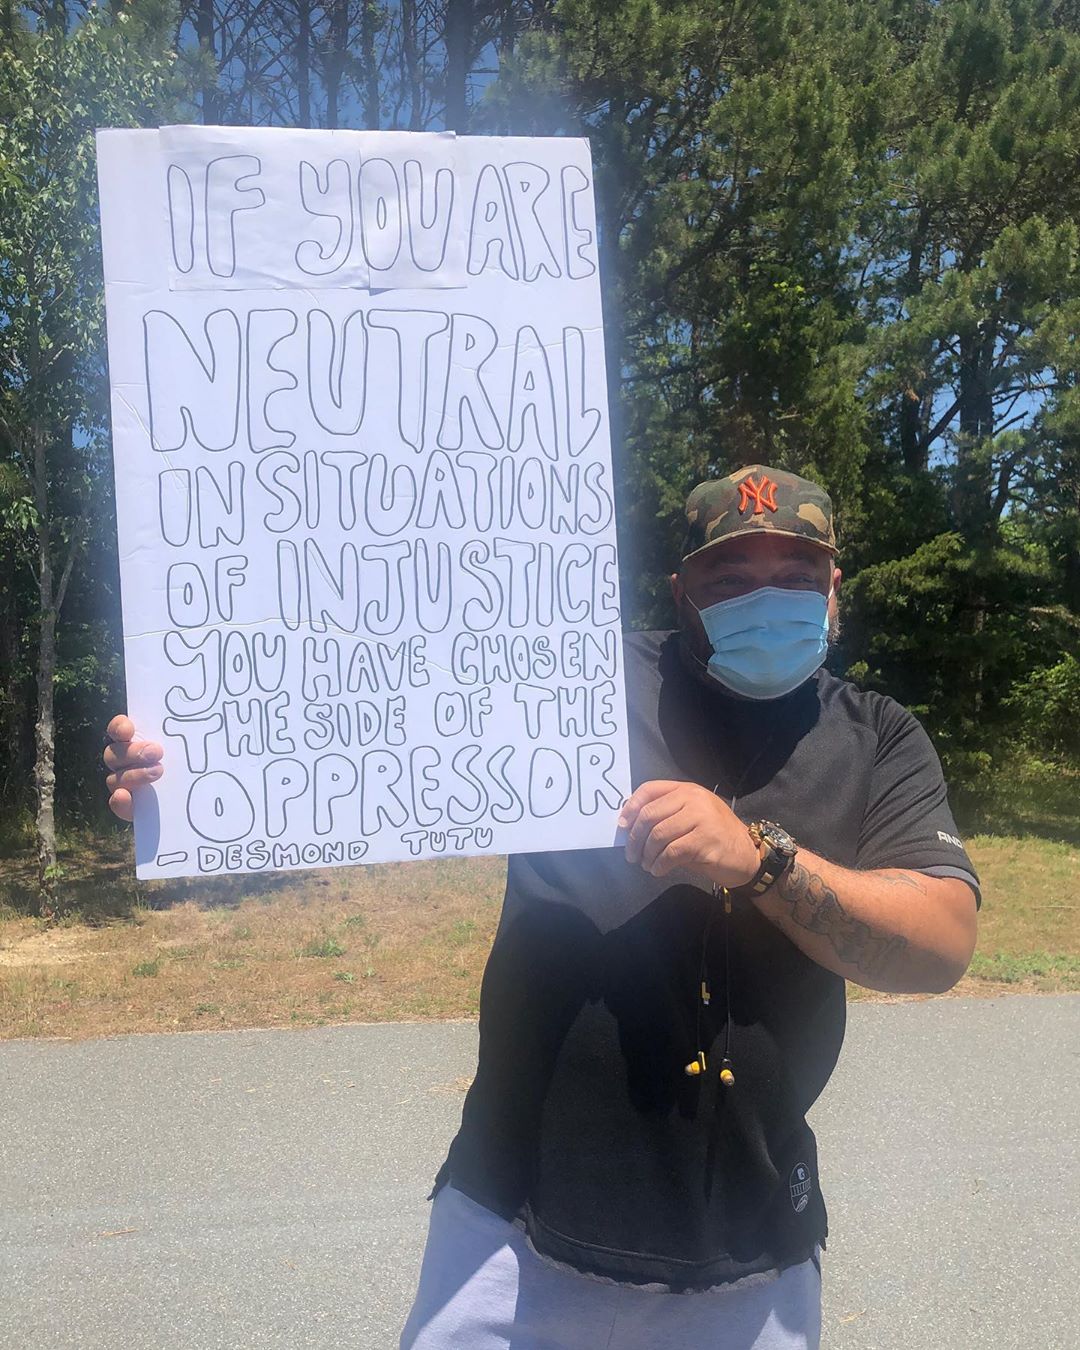 IF YOU ARE
NEUTRAL
IN SITUATIONS
OF INJUSTICE
YOU HAVE CHOSEN
THE SIDE OF THE
OPPRESSOR
- DESMOND TUTU
NY